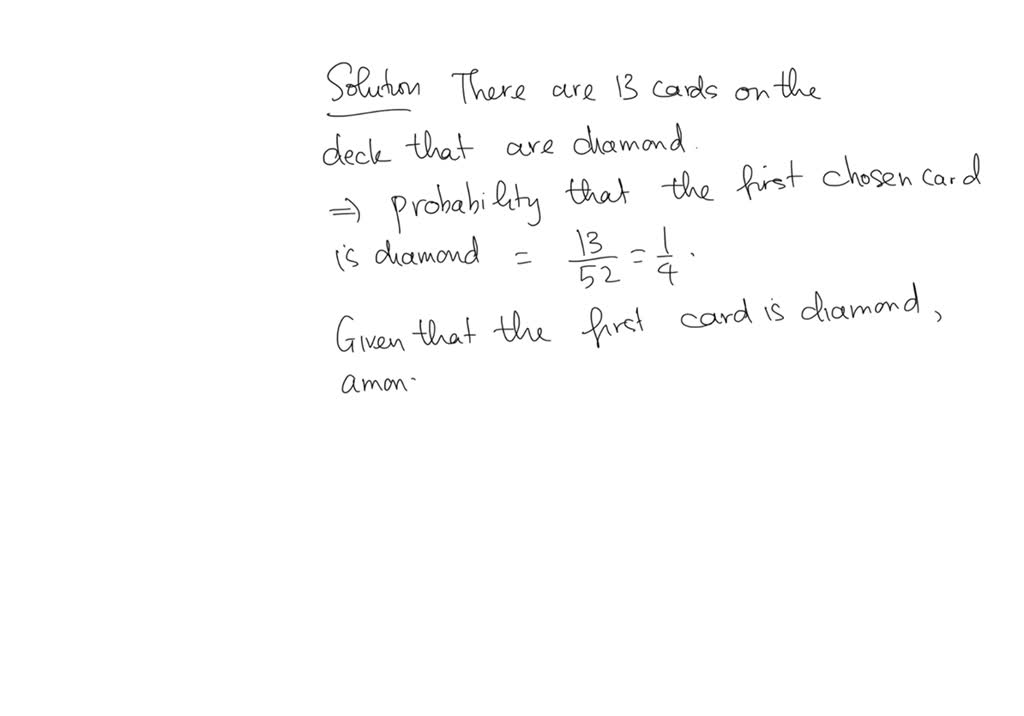 Solution There are 13 cards on the
deck that are diamond.
⇒ probability that the first chosen card
is diamond = 13/52 = 1/4.
Given that the first card is diamond,
amon